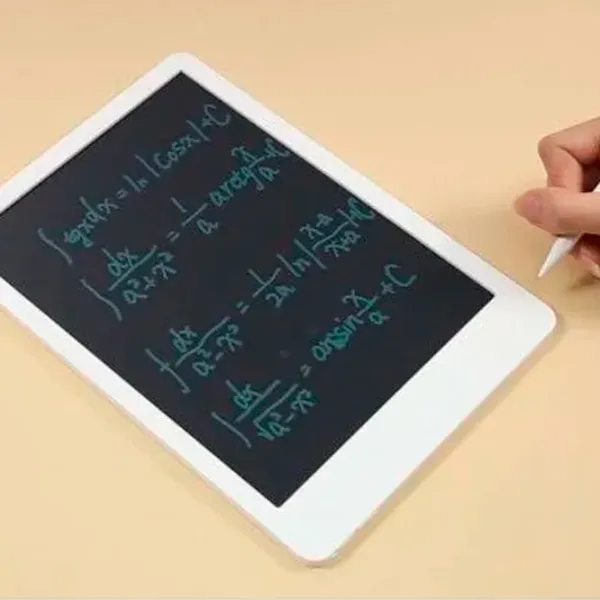 ∫tgxdx = ln|cosx|+C
∫dx/(a²+x²) = 1/a arctg x/a +C
∫dx/(a²-x²) = 1/2a ln|(x-a)/(x+a)|+C
∫dx/√(a²-x²) = arcsin x/a +C